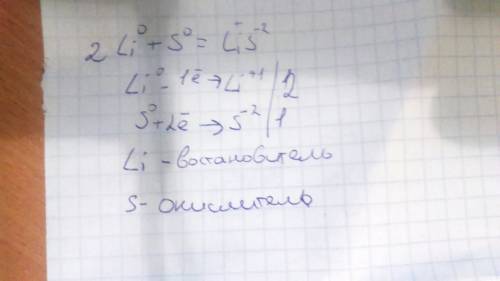 2 Li⁰ + S⁰ = Li⁺S⁻²
Li⁰ - 1ē → Li⁺¹ | 2
S⁰ + 2ē → S⁻² | 1
Li - востановитель
S - окислитель